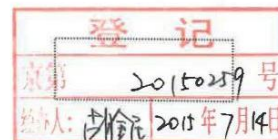 登记
京第20150259号
经办人: 2015年7月14